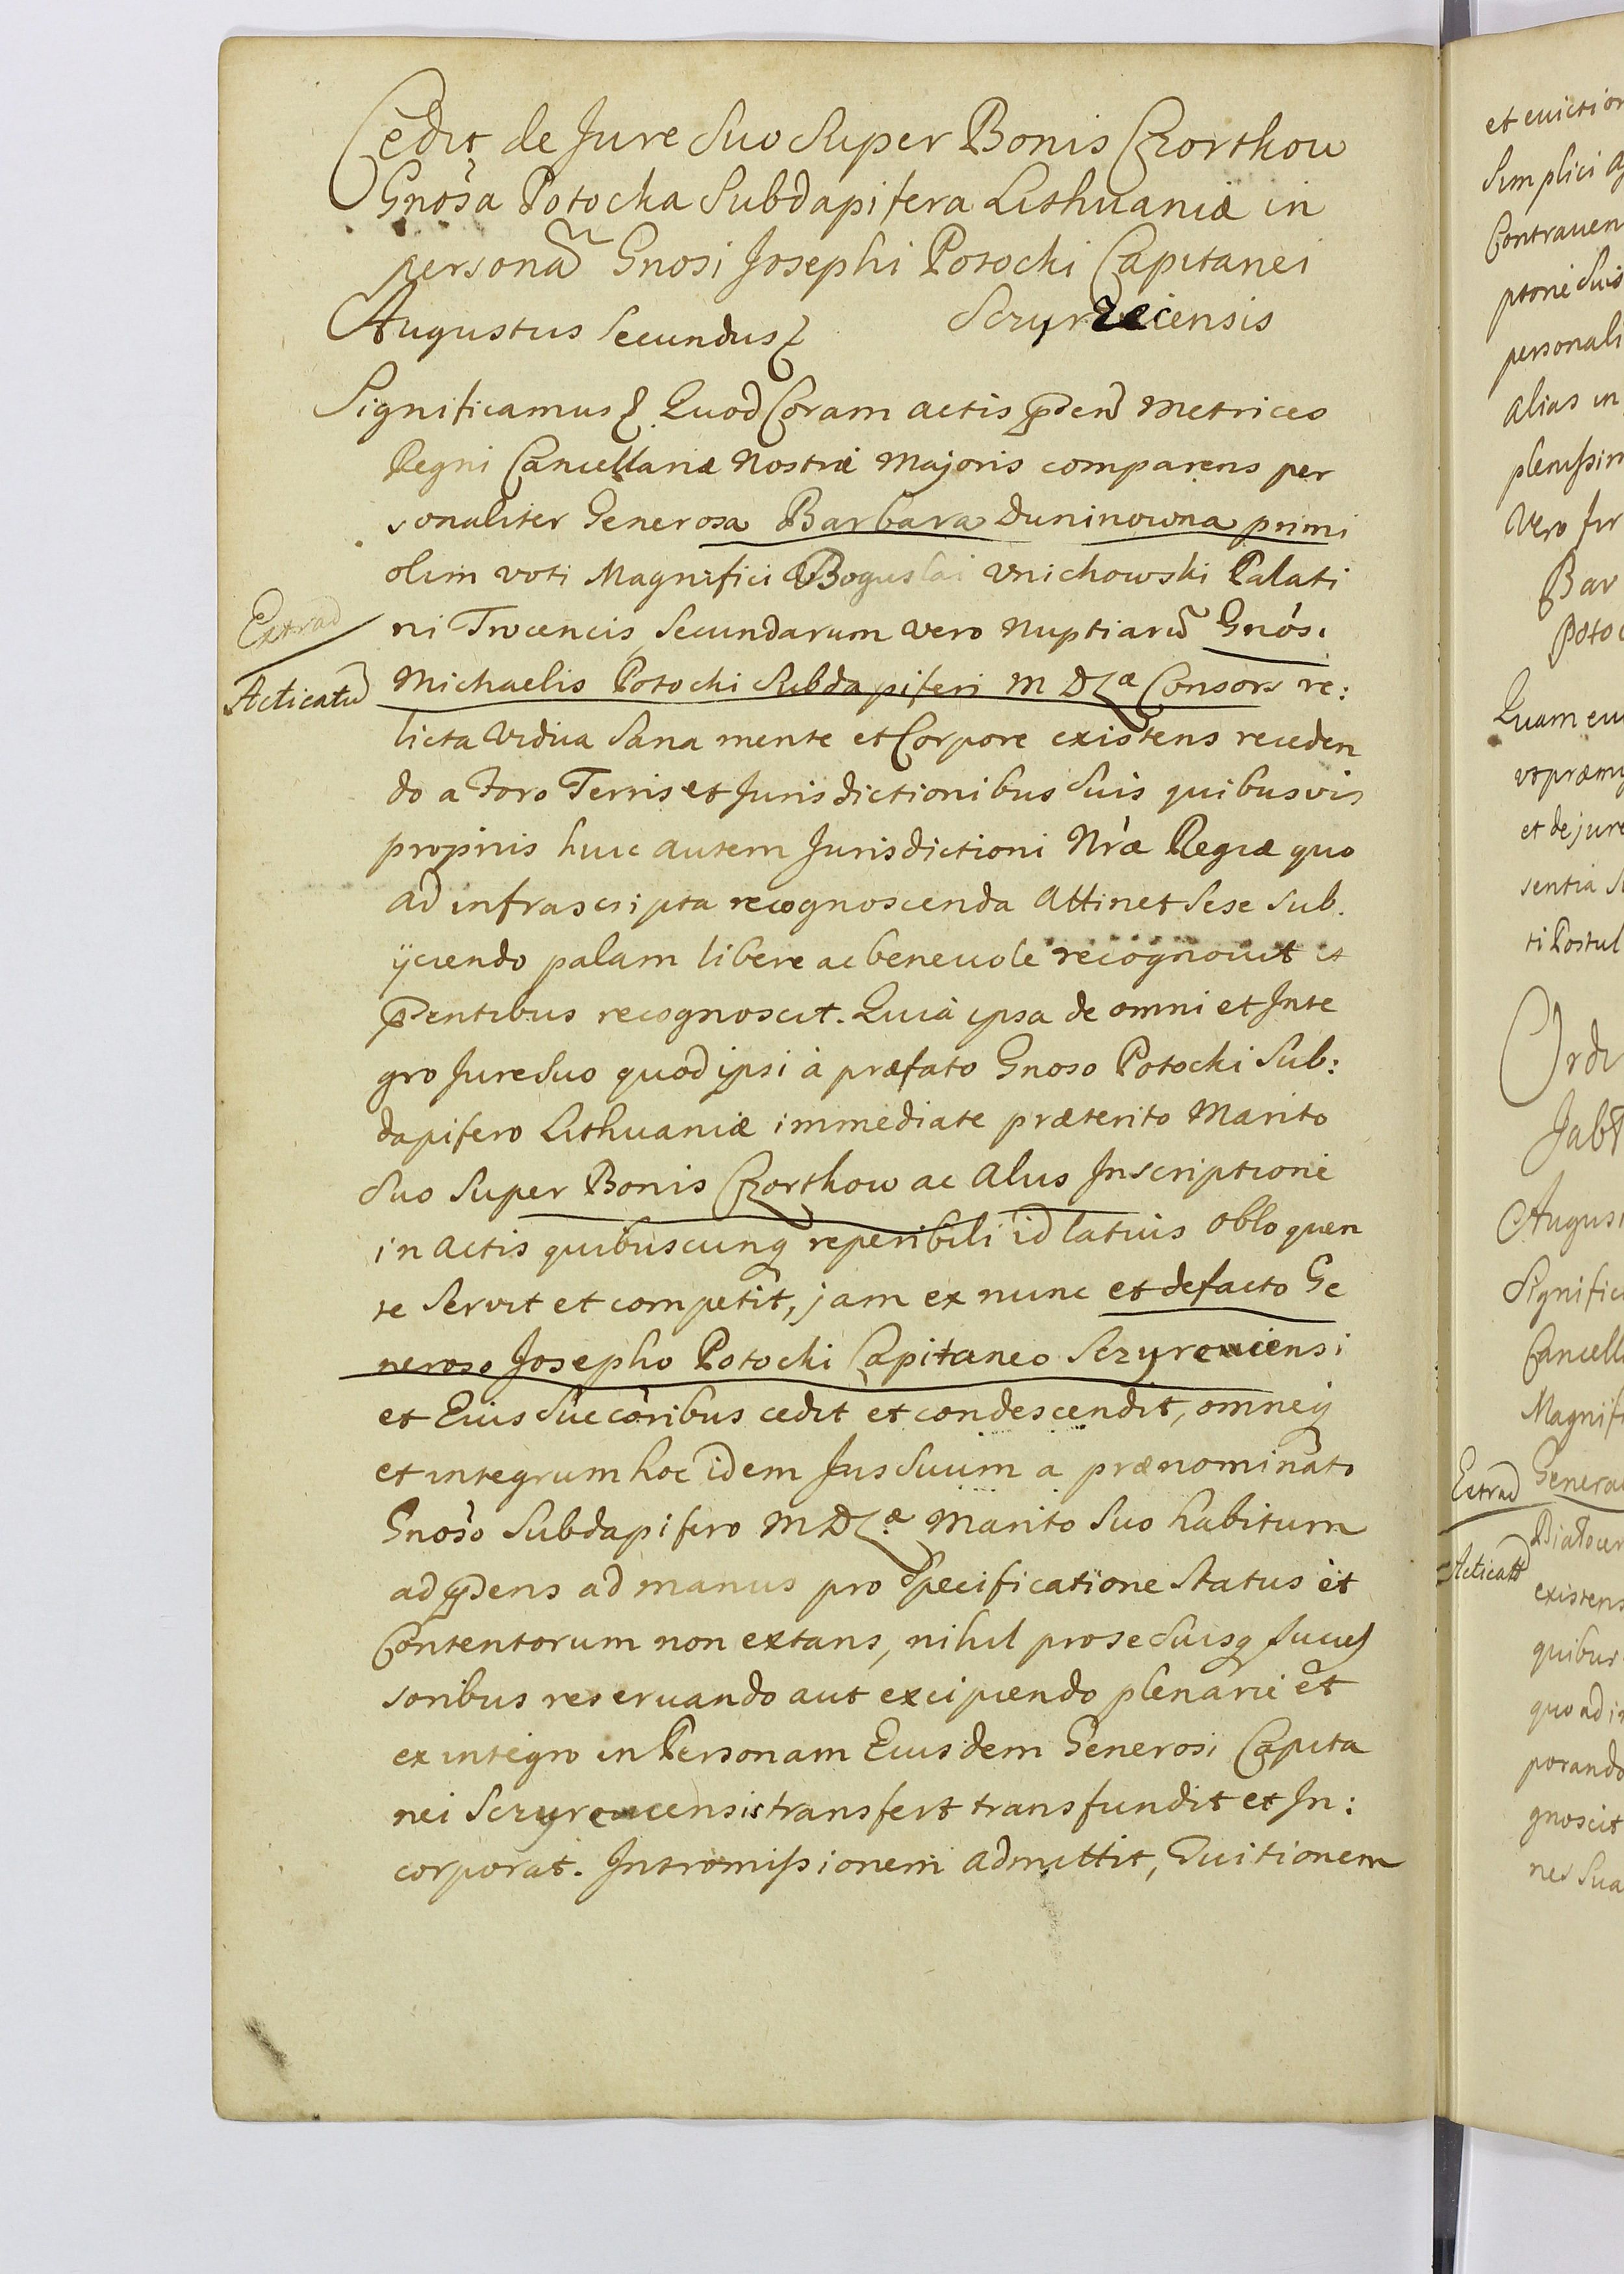 Cedit de Jure Suo Super Bonis Czorthow
Gnosa Potocka Subdapifera Lithuaniæ in
personã Gnosi Josephi Potocki Capitanei
Augustus Secundus
Significamus Quod Coram actis Metrices
Regni Cancellariæ Nostræ Majoris comparens per
sonaliter Generosa Barbara Duninowna primi
olim voti Magnifici Boguslai Unichowski Palati
Extrad
ni Trocencis, Secundarum vero Nuptiarũ Gnosi
Acticatũ
Michaelis Potocki Subdapiferi M D Lᵃ Consors re:
licta Vidua Sana mente et Corpore existens receden
do a Foro Terris et Jurisdictionibus Suis quibusvis
propriis huic autem Jurisdictioni Nræ Regiæ quo
ad infrascripta recognoscenda attinet Sese Sub.
ijciendo palam libere ac beneuole recognouit et
pñtentibus recognoscit. Quia ipsa de omni et Inte
gro Jure Suo quod ipsi à præfato Gnoso Potocki Sub:
dapifero Lithuaniæ immediate præterito Marito
Suo Super Bonis Czorthow ac aliis Inscriptione
in actis quibuscunq reperibili id latius obloquen
te Servit et competit, jam ex nunc et defacto Ge
neroso Josepho Potocki Capitaneo
et Eius Succoribus cedit et condescendit, omneq
et integrum hoc idem Jus Suum a prænominato
Gnoso Subdapifero M D Lᵃ Marito Suo habitum
ad manus pro Specificatione Status et
Contentorum non extans, nihil pro se Suisq Succes
soribus reseruando aut excipiendo plenarie et
ex integro in Personam Eiusdem Generosi Capita
nei transfert transfundit et In:
corporat. Intromissionem admittit, Euitionem
et euiction
Simplici
Contrauen
ptione Suis
personali
alias in
plenissim
Vero Jur
Bar
Potoc
Quam eu
ut præmi
et de jure
sentia
ti Postul
Ordi
Jabł
August
Signific
Cancell
Magnifi
Extrad
Generos
Acticat
existens
quibus
quo ad i
porando
gnoscit
nes Sua